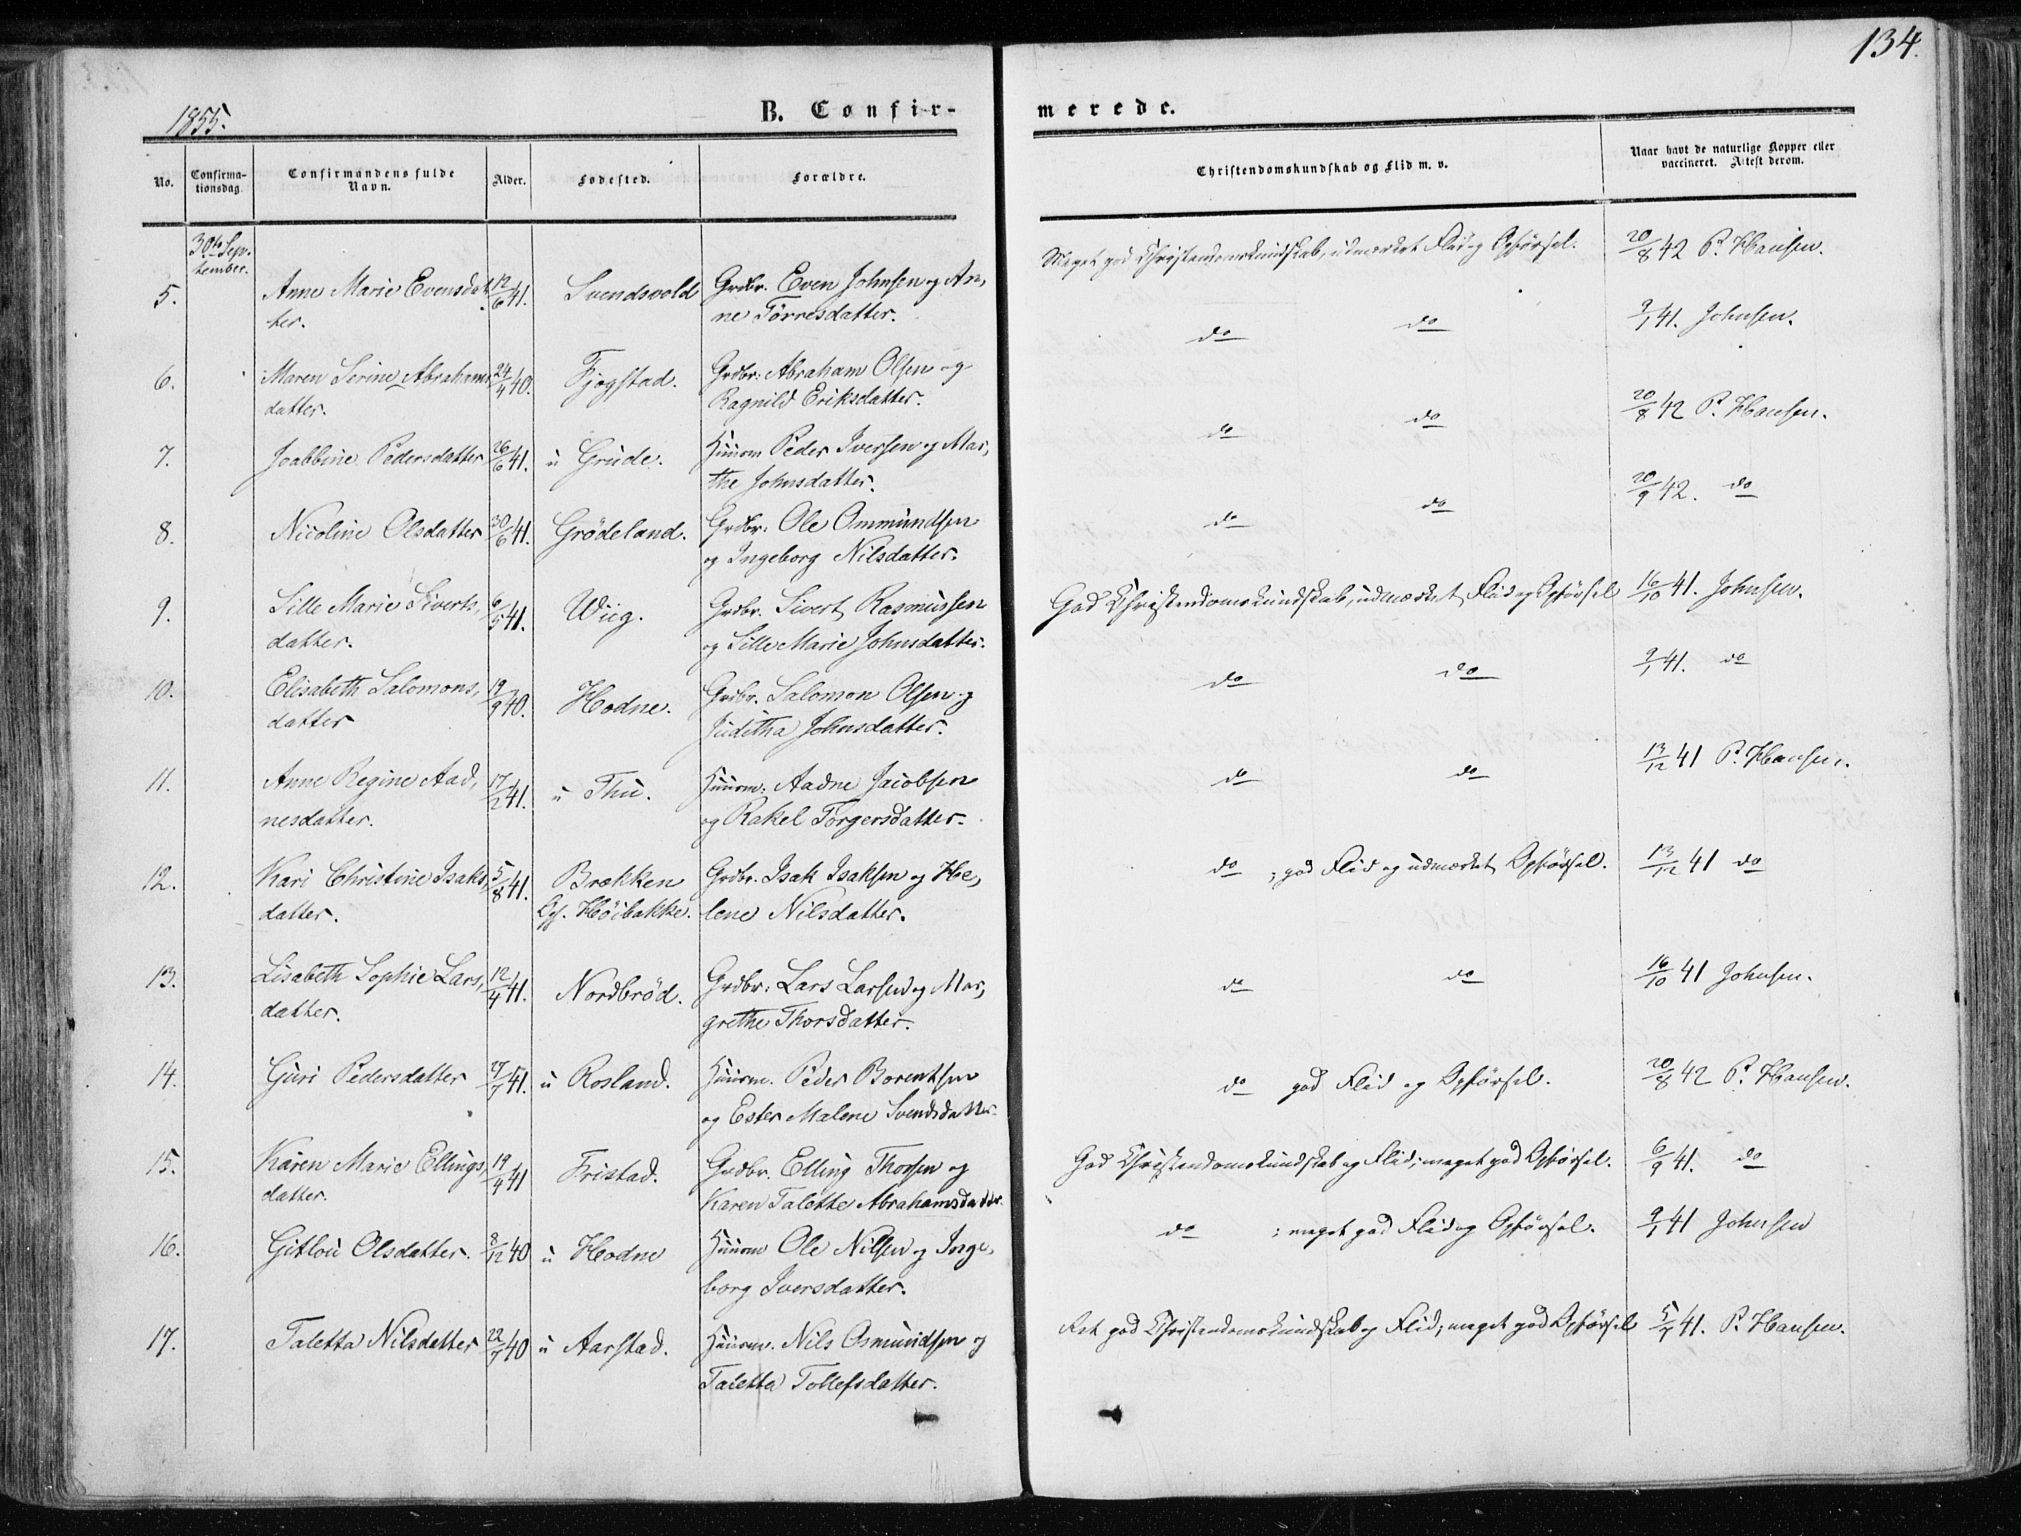 134.
1855.
B. Confir-
merede.
No.
Confirma-
tionsdag.
Confirmandens fulde
Navn.
Alder.
Fødested.
Forældre.
Christendomskundskab og Flid m. v.
Naar havt de naturlige Kopper eller
vaccineret. Attest derom.
30te Sep-
tember.
5. Anne Marie Evensdat- 12/6 41. Svendsvold Grdbr. Even Johnsen og An-
ter. ne Törresdatter.
Meget god Christendomskundskab, udmærket Flid og Opförsel. 20/8 42 P. Hansen.
6. Maren Serine Abrahams 24/4 40. Fjogstad. Grdbr: Abraham Olsen og
datter. Ragnild Eriksdatter.
do do 9/1 41. Johnsen.
7. Joabbine Pedersdatter 26/6 41. u Grude. Huusm Peder Iversen og Mar-
the Johnsdatter.
do do 20/8 42 P. Hansen.
8. Nicoline Olsdatter 30/6 41. Grödeland. Grdbr: Ole Ommundsen
og Ingeborg Nilsdatter.
do do 20/9 42. do
9. Sille Marie Siverts- 6/5 41. Wiig. Grdbr. Sivert Rasmussen
datter. og Sille Marie Johnsdatter.
God Christendomskundskab, udmærket Flid og Opförsel 16/10 41. Johnsen.
10. Elisabeth Salomons- 19/9 40. Hodne. Grdbr. Salomon Olsen og
datter Juditha Johnsdatter.
do do 9/1 41. do
11. Anne Regine Aad- 17/2 41. u Thu. Huusm: Aadne Jacobsen
nesdatter. og Rakel Torgersdatter.
do do 13/12 41 P. Hansen.
12. Kari Christine Isaks- 5/8 41. Brækken Grdbr. Isak Isaksen og He-
datter. Höibakke. lene Nilsdatter.
do ; god Flid og udmærket Opförsel. 13/12 41 do
13. Lisabeth Sophie Lars- 12/4 41. Nordbröd. Grdbr: Lars Larsen og Mar-
datter. grethe Thorsdatter.
do do 16/10 41 Johnsen.
14. Guri Pedersdatter 27/7 41. u Rosland. Huusm. Peder Berentsen
og Ester Malene Svendsdatter
do god Flid og Opförsel. 20/8 42 P. Hansen.
15. Karen Marie Ellings- 19/4 41 Fristad. Grdbr. Elling Thorsen og
datter. Karen Talette Abrahamsdatter.
God Christendomskundskab og Flid; meget god Opförsel. 6/9 41. do
16. Gitlou Olsdatter. 8/12 40 u Hodne Huusm Ole Nilsen og Inge-
borg Iversdatter.
do ; meget god Flid og Opförsel. 9/1 41 Johnsen
17. Taletta Nilsdatter 22/7 40 u Aarstad. Huusm. Nils Osmundsen og
Taletta Tollefsdatter.
Ret god Christendomskundskab og Flid; meget god Opförsel 5/7 41. P. Hansen.